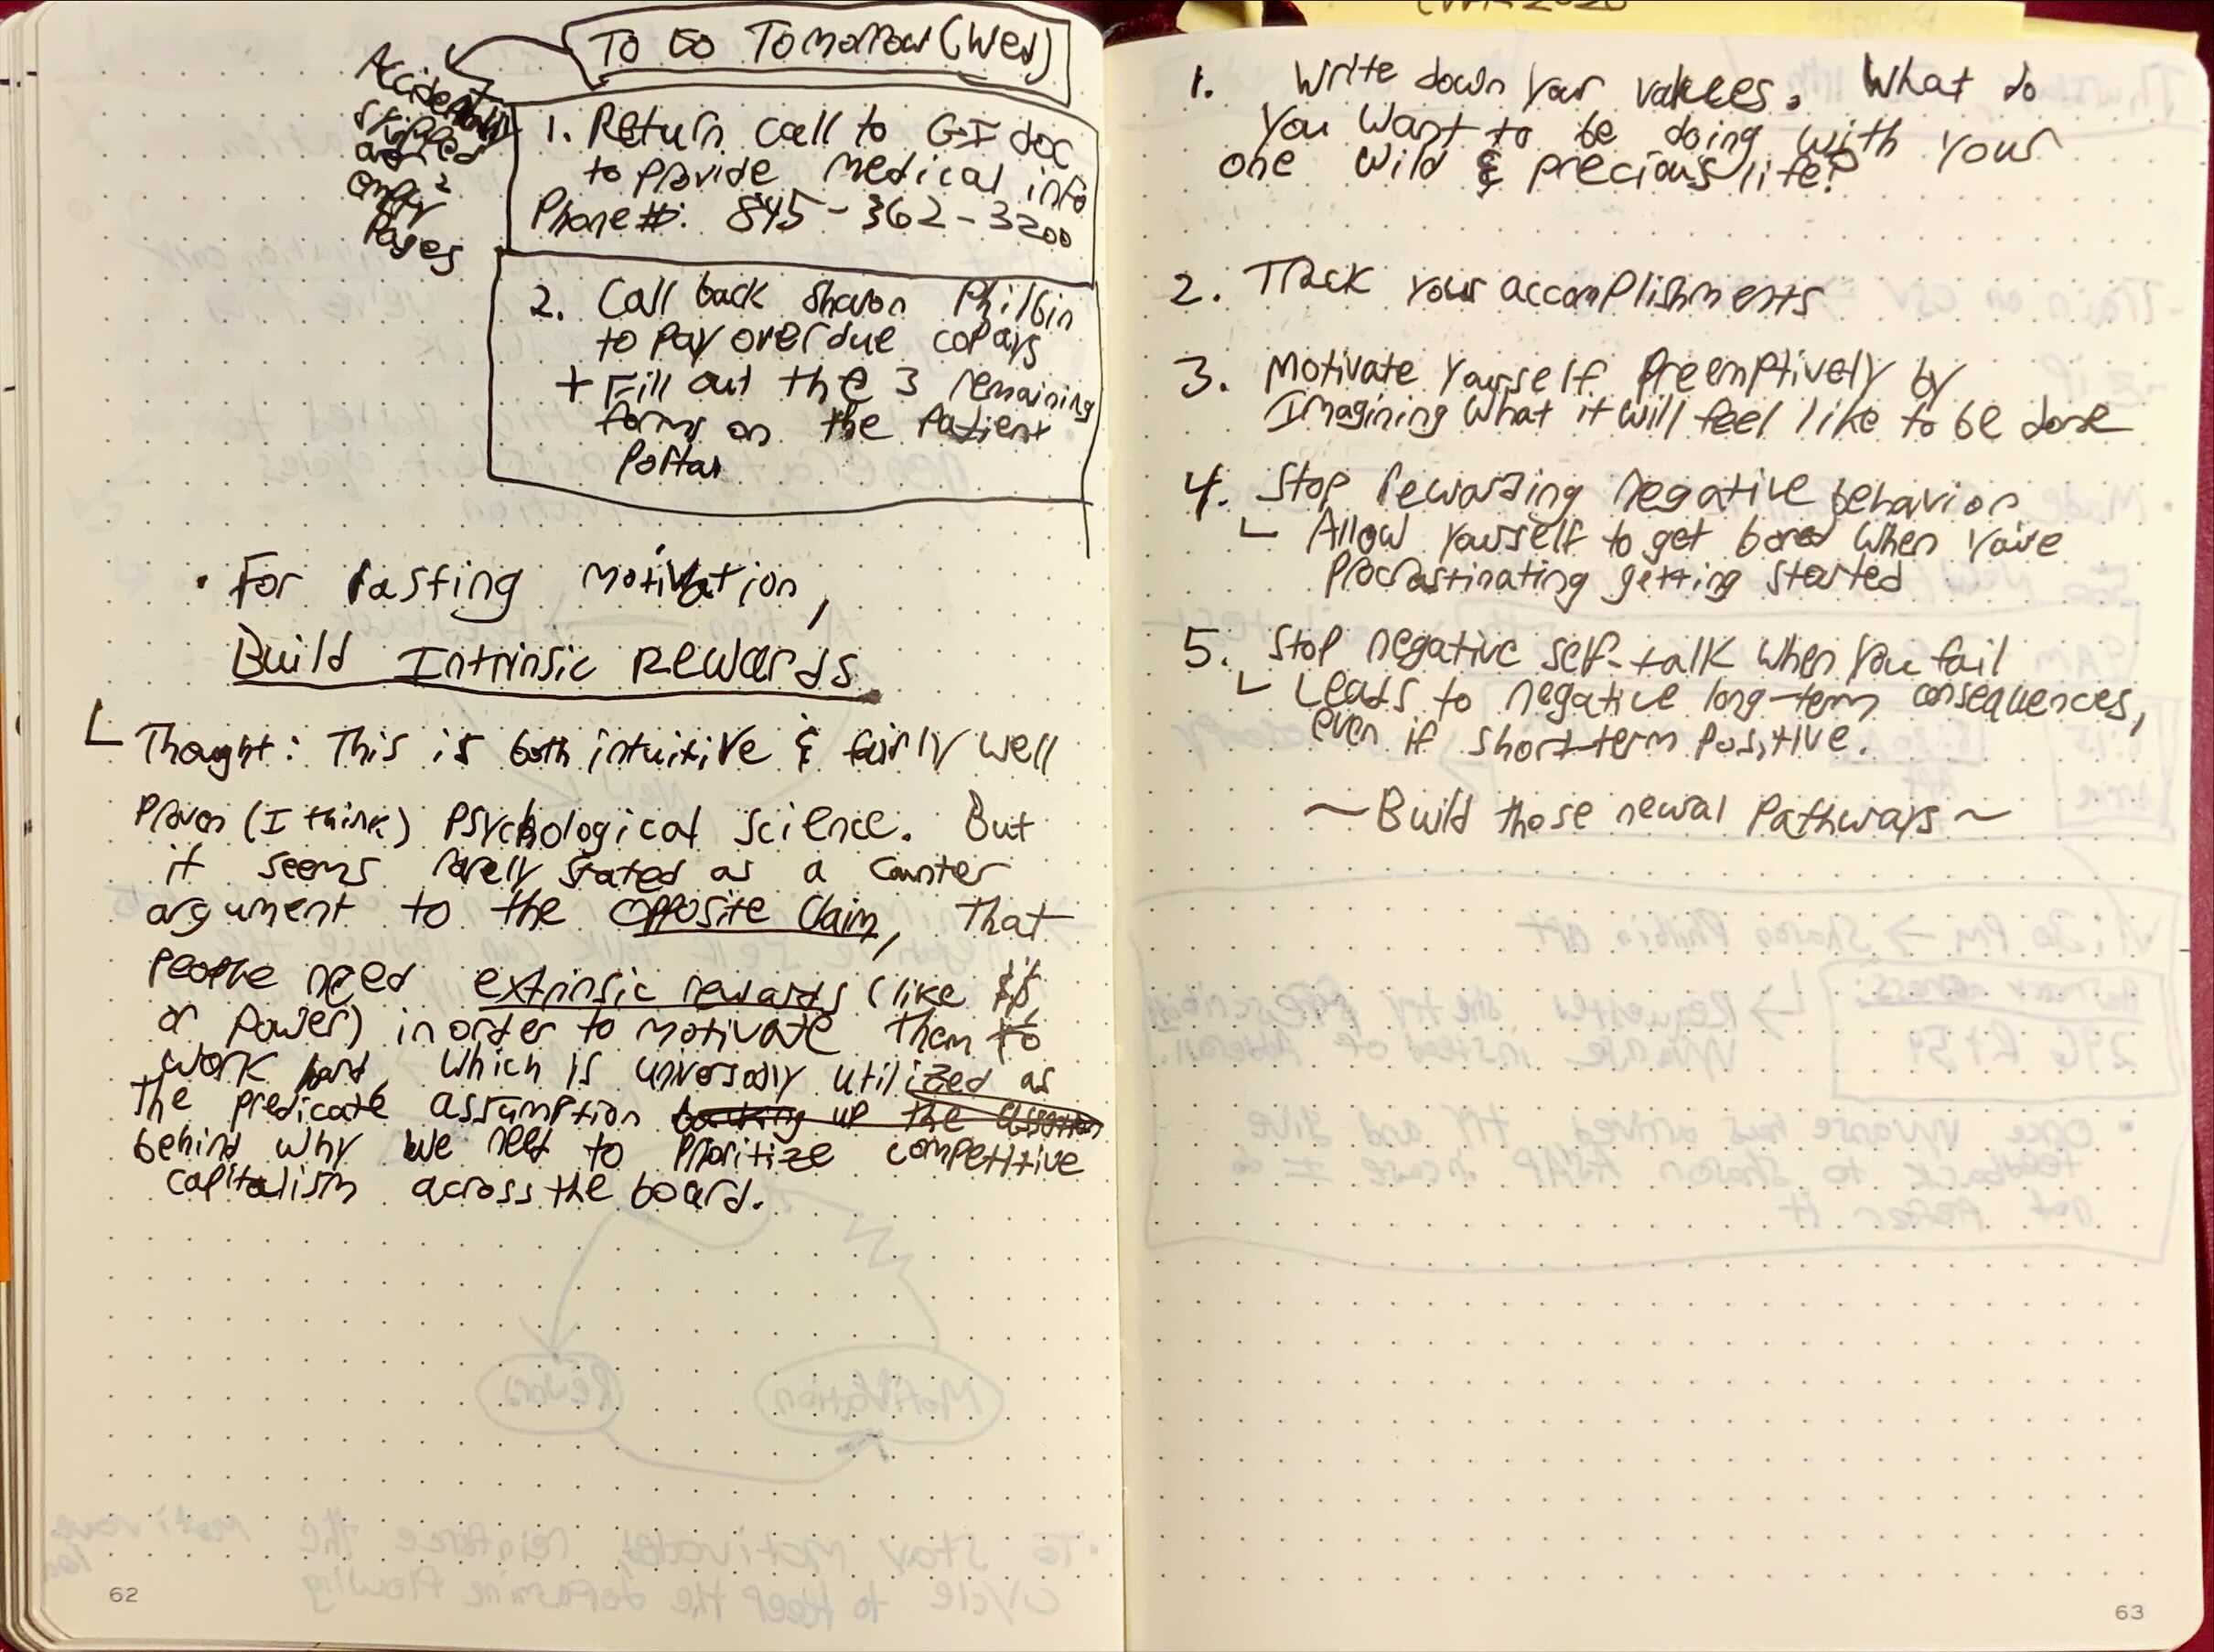 To Do Tomorrow (Wed)
Accidentally
skipped
added
empty 2
pages
1. Return call to GI doc
to provide medical info
Phone #: 845-362-3200
2. Call back Sharon Philbin
to pay overdue copays
+ Fill out the 3 remaining
forms on the patient
portal
• For lasting motivation,
Build Intrinsic Rewards
Thought: This is both intuitive & fairly well
proven (I think) psychological science. But
it seems rarely stated as a counter
argument to the opposite claim, that
people need extrinsic rewards (like $$
or power) in order to motivate them to
work hard, which is universally utilized as
the predicate assumption backing up the assertion
behind why we need to prioritize competitive
capitalism across the board.
62
1. Write down your values. What do
you want to be doing with your
one wild & precious life?
2. Track your accomplishments
3. Motivate yourself preemptively by
Imagining what it will feel like to be done
4. Stop rewarding negative behavior
Allow yourself to get bored when you're
procrastinating getting started
5. Stop negative self-talk when you fail
Leads to negative long-term consequences,
even if short-term positive.
~Build those neural pathways~
63